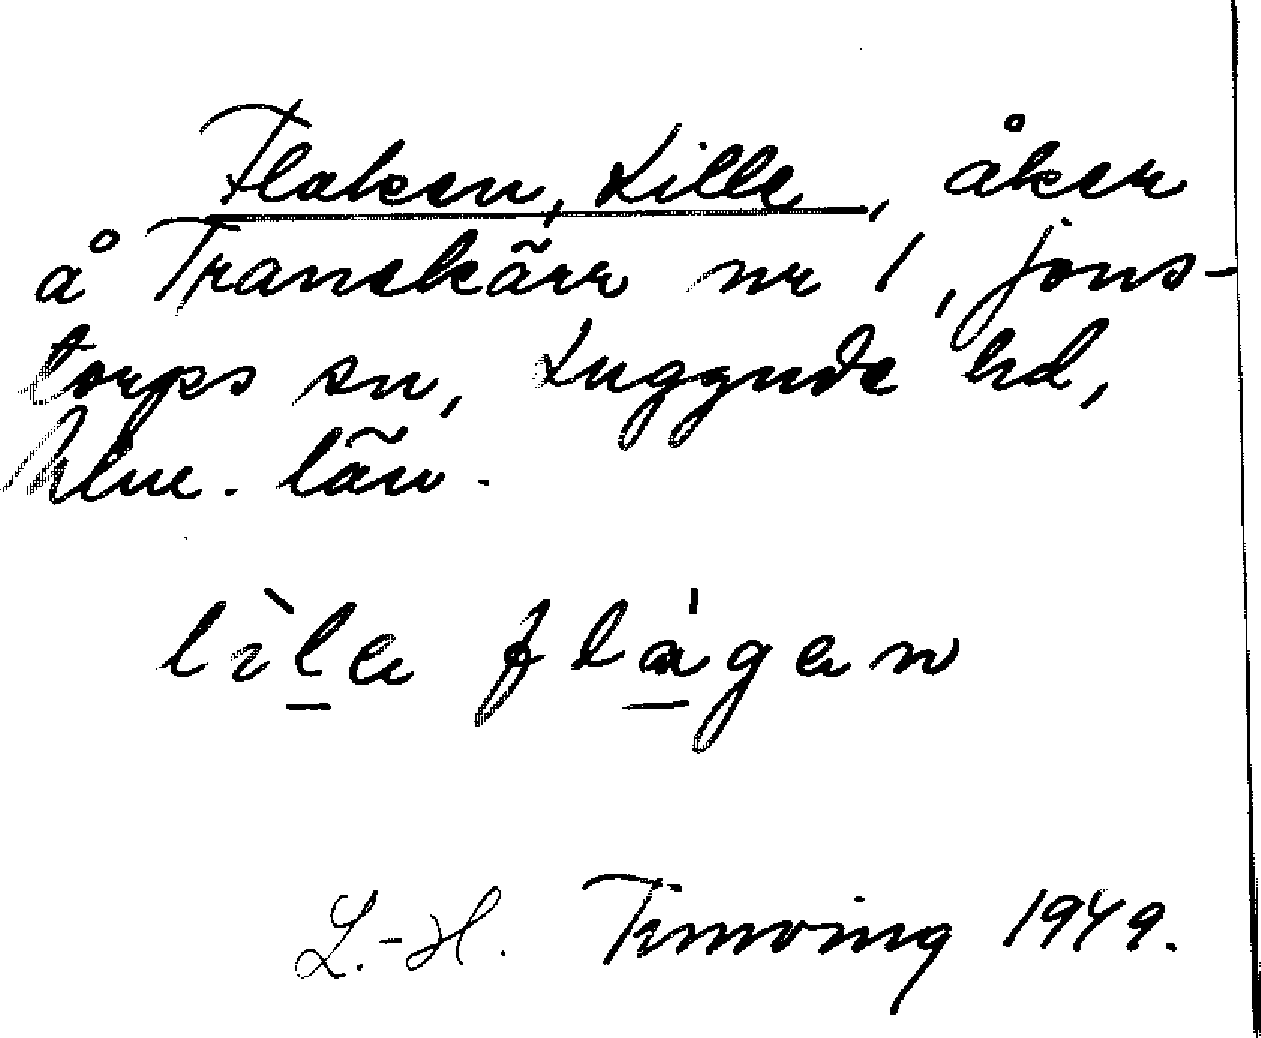 Flaken, Lille, åker
å Tranekärr nr 1, Jons-
torps sn, Luggude hd,
Mlm. län.
lìle flágen
L.-H. 1949.